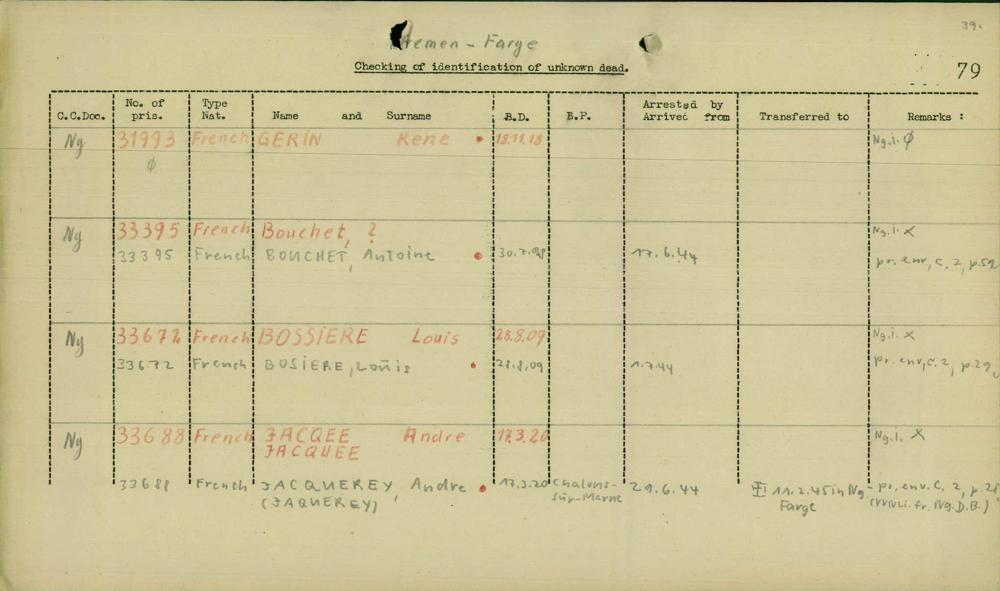 39.
Bremen - Farge
Checking of identification of unknown dead.
79
C.C.Doc. No. of pris. Type Nat. Name and Surname B.D. B.P. Arrested by Arrived from Transferred to Remarks :
Ng 31993 French GERIN Rene 18.11.18 Ng.i. ϕ
ϕ
Ng 33395 French Bouchet, ? Ng.i. x
33395 French BOUCHET, Antoine 30.7.98 17.6.44 pr. env, C. 2, p.59
Ng 33672 French BOSSIERE Louis 28.8.09 Ng.i. x
33672 French BOSIERE, Louis 28.8.09 1.7.44 pr. env, C. 2, p.29
Ng 33688 French JACQEE Andre 17.3.20 Ng.i. x
JACQUEE
33688 French JACQUEREY, Andre 17.3.20 Chalons- 29.6.44 11.2.45 in Ng- pr. env. C. 2, p.28
(JAQUEREY) sur-Marne Farge fr. Ng. D.B.)